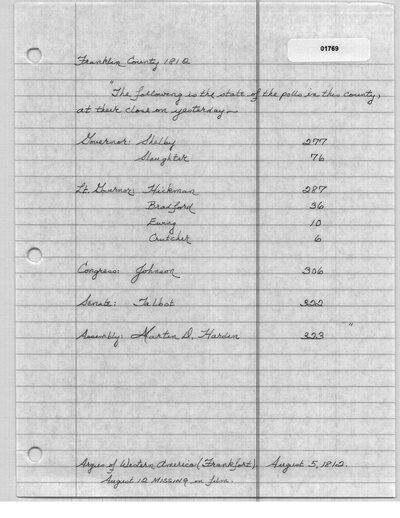 01769
Franklin County 1812
"The following is the state of the polls in this county,
at their close on yesterday—
Governor: Shelby 277
Slaughter 76
Lt. Governor: Hickman 287
Bradford 36
Ewing 10
Crutcher 6
Congress: Johnson 306
Senate: Talbot 322
Assembly: Martin D. Hardin 323 "
Argus of Western America (Frankfort). August 5, 1812.
August 12 MISSING on film.